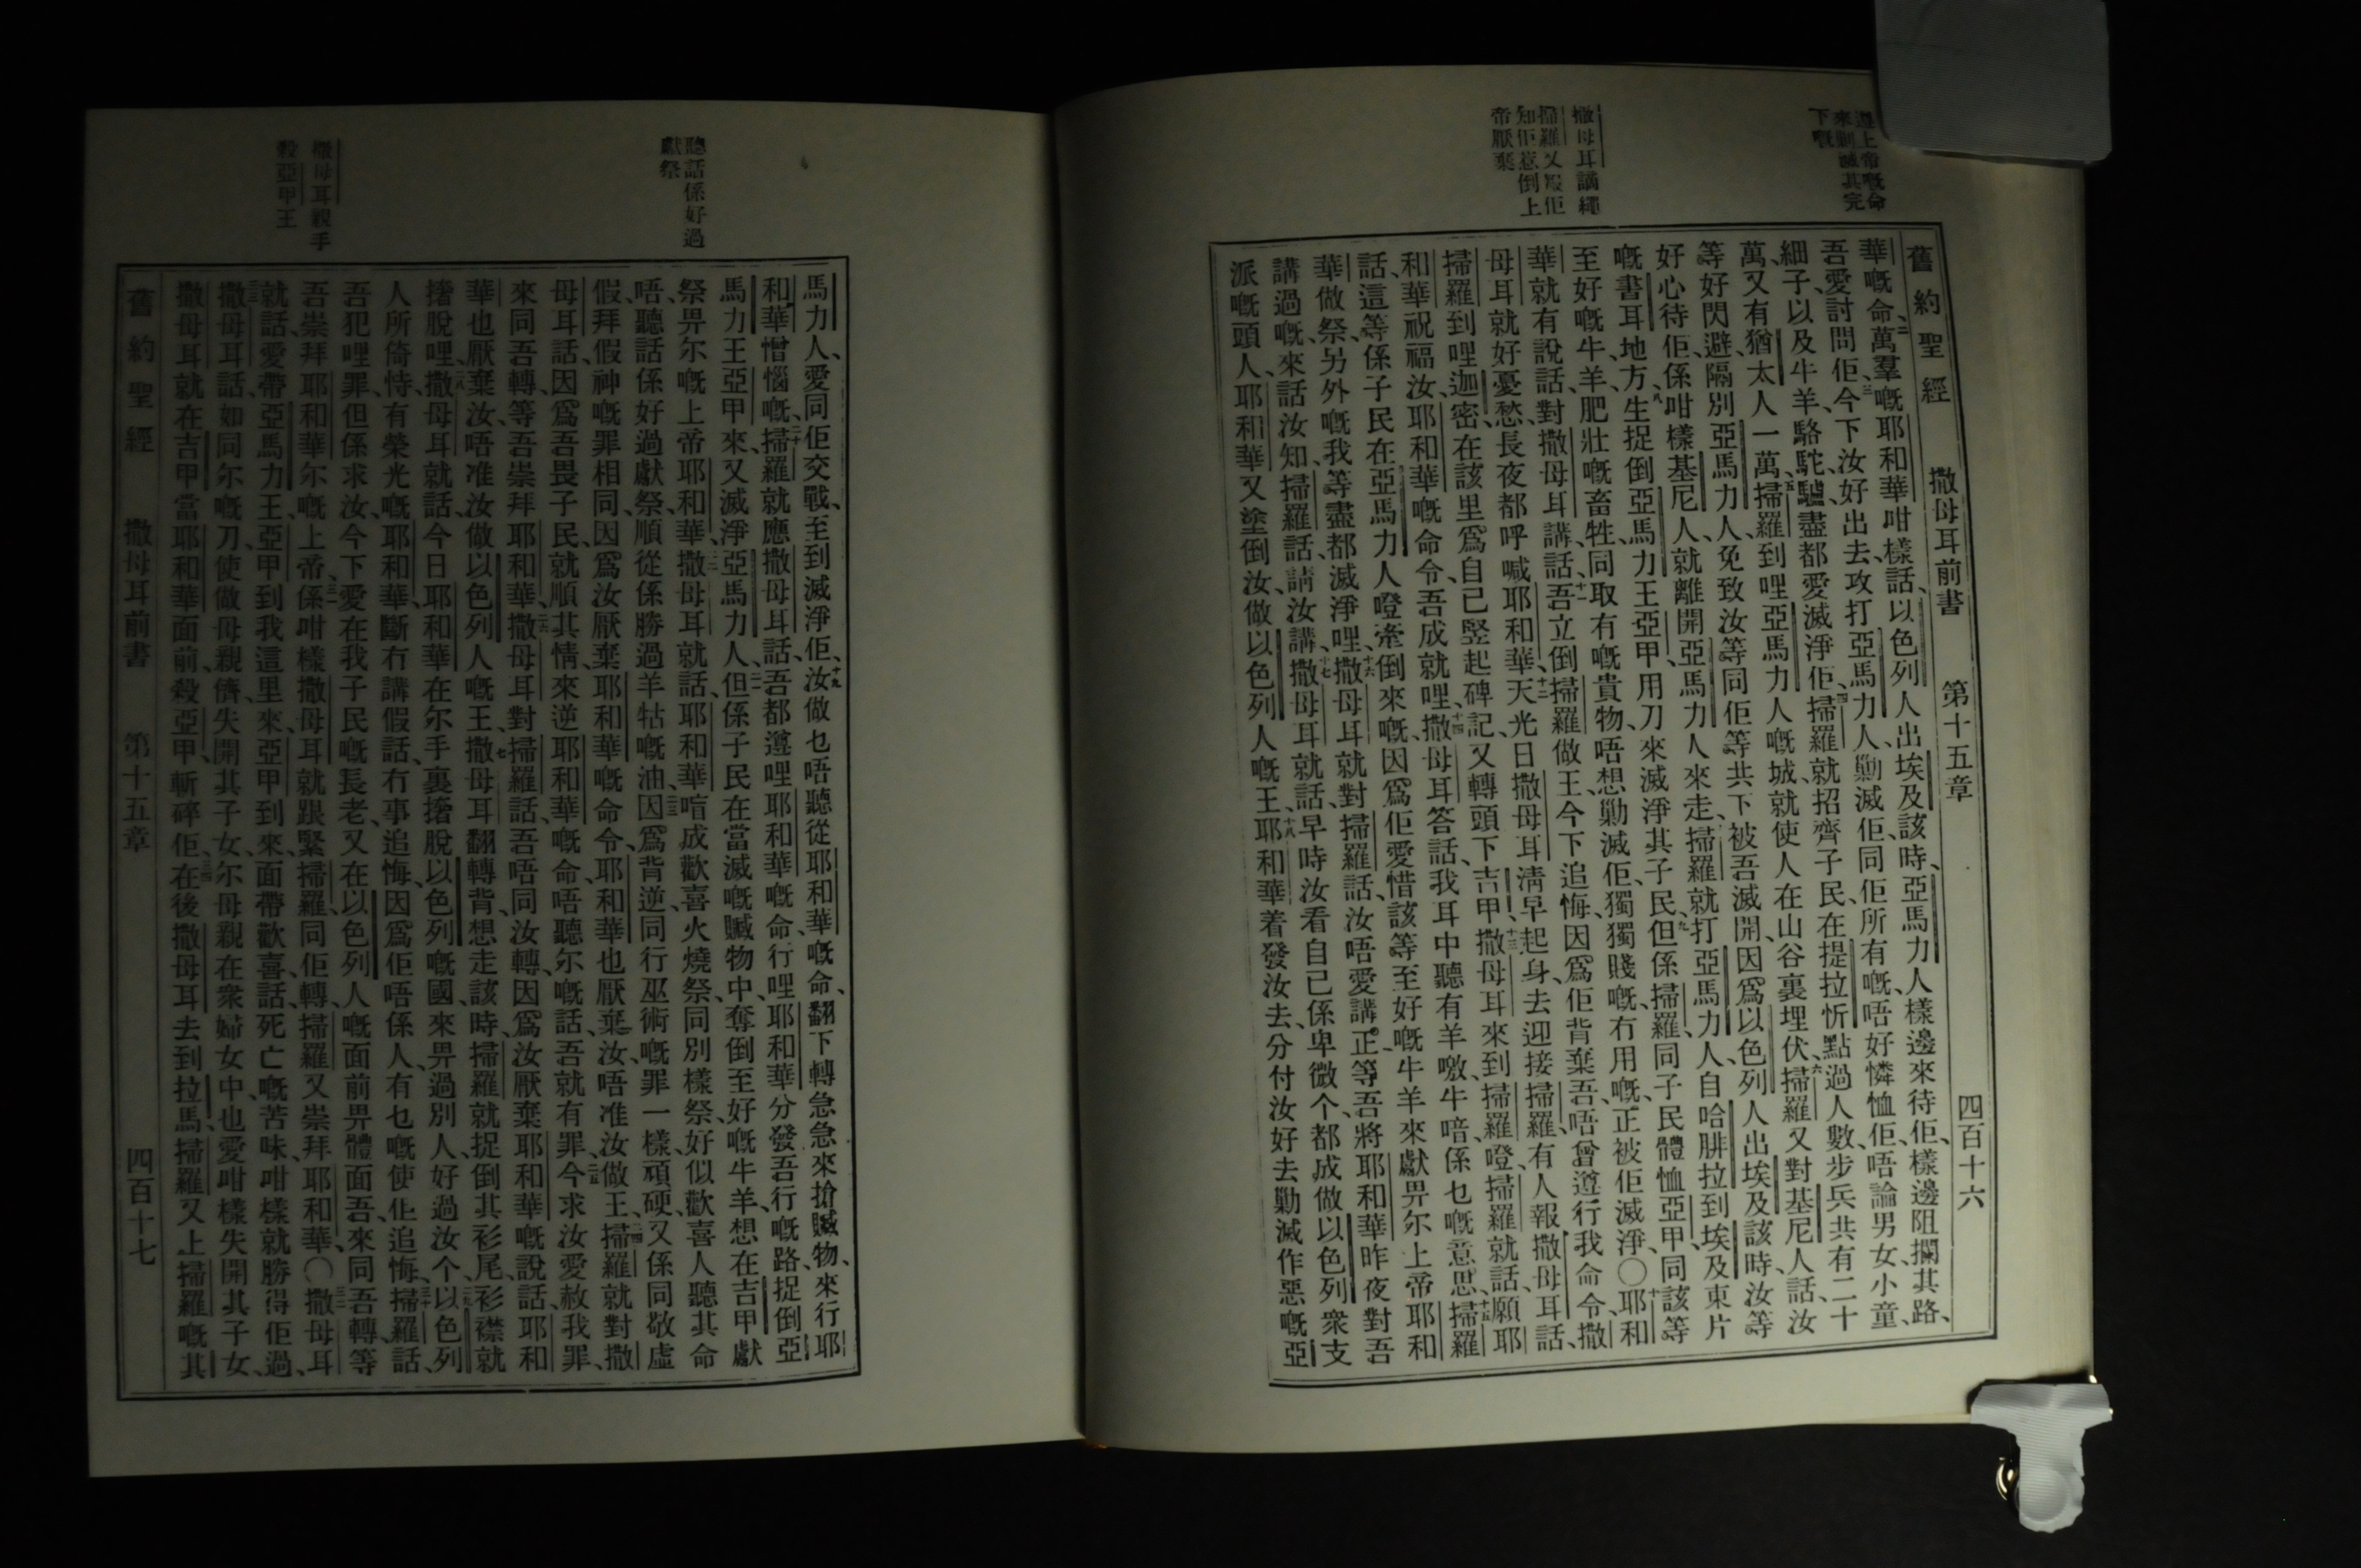 遵上帝嘅命
來剿滅其完
下嘅
撒母耳譎繩
掃羅又報佢
知佢惹倒上
帝厭棄
舊約聖經 撒母耳前書 第十五章 四百十六
華嘅命、二萬羣嘅耶和華咁樣話、以色列人出埃及該時、亞馬力人樣邊來待佢、樣邊阻攔其路、
吾愛討問佢、三今下汝好出去、攻打亞馬力人、勦滅佢、同佢所有嘅、唔好憐恤佢、唔論男女、小童、
細子、以及牛羊、駱駝、驢、盡都愛滅淨佢、四掃羅就招齊子民、在提拉忻點過人數、步兵共有二十
萬、又有猶太人一萬、五掃羅到哩亞馬力人嘅城、就使人在山谷裏埋伏、六掃羅又對基尼人話、汝
等好閃避、隔別亞馬力人、免致汝等同佢等共下被吾滅開、因爲以色列人出埃及該時、汝等
好心待佢、係咁樣基尼人、就離開亞馬力人來走、七掃羅就打亞馬力人、自哈腓拉到埃及東片
嘅書耳地方、八生捉倒亞馬力王亞甲、用刀來滅淨其子民、九但係掃羅、同子民體恤亞甲、同該等
至好嘅牛、羊、肥壯嘅畜牲、同取有嘅貴物、唔想勦滅佢、獨獨賤嘅、冇用嘅、正被佢滅淨、〇十耶和
華就有說話、對撒母耳講話、十一吾立倒掃羅做王、今下追悔、因爲佢背棄吾、唔曾遵行我命令、撒
母耳就好憂愁、長夜都呼喊耶和華、十二天光日撒母耳淸早起身、去迎接掃羅、有人報撒母耳話、
掃羅到哩迦密、在該里爲自己竪起碑記、又轉頭下吉甲、十三撒母耳來到掃羅嶝、掃羅就話、願耶
和華祝福汝、耶和華嘅命令、吾成就哩、十四撒母耳答話、我耳中聽有羊噭、牛喑、係乜嘅意思、十五掃羅
話、這等係子民在亞馬力人嶝牽倒來嘅、因爲佢愛惜該等至好嘅牛羊、來獻畀尔上帝耶和
華做祭、另外嘅我等盡都滅淨哩、十六撒母耳就對掃羅話、汝唔愛講、正等吾將耶和華昨夜對吾
講過嘅、來話汝知、掃羅話、請汝講、十七撒母耳就話、早時汝看自己係卑微个、都成做以色列衆支
派嘅頭人、耶和華又塗倒汝、做以色列人嘅王、十八耶和華着發汝去、分付汝好去勦滅作惡嘅亞
聽話係好過
獻祭
撒母耳親手
殺亞甲王
馬力人、愛同佢交戰、至到滅淨佢、十九汝做乜唔聽從耶和華嘅命、翻下轉急急來搶贓物、來行耶
和華憎惱嘅、二十掃羅就應撒母耳話、吾都遵哩耶和華嘅命、行哩耶和華分發吾行嘅路、捉倒亞
馬力王亞甲來、又滅淨亞馬力人、二一但係子民在當滅嘅贓物中、奪倒至好嘅牛羊、想在吉甲獻
祭畀尔嘅上帝耶和華、二二撒母耳就話、耶和華喑成歡喜火燒祭、同別樣祭、好似歡喜人聽其命
唔、聽話係好過獻祭、順從係勝過羊牯嘅油、二三因爲背逆、同行巫術嘅罪一樣、頑硬、又係同敬虛
假、拜假神嘅罪相同、因爲汝厭棄耶和華嘅命令、耶和華也厭棄汝、唔准汝做王、二四掃羅就對撒
母耳話、因爲吾畏子民、就順其情、來逆耶和華嘅命、唔聽尔嘅話、吾就有罪、二五今求汝愛赦我罪、
來同吾轉、等吾崇拜耶和華、二六撒母耳對掃羅話、吾唔同汝轉、因爲汝厭棄耶和華嘅說話、耶和
華也厭棄汝、唔准汝做以色列人嘅王、二七撒母耳翻轉背、想走該時、掃羅就捉倒其衫尾、衫襟就
撦脫哩、二八撒母耳就話、今日耶和華在尔手裏撦脫以色列嘅國、來畀過別人、好過汝个、二九以色列
人所倚恃、有榮光嘅、耶和華、斷冇講假話、冇事追悔、因爲佢唔係人、有乜嘅使佢追悔、三十掃羅話、
吾犯哩罪、但係求汝、今下愛在我子民嘅長老、又在以色列人嘅面前畀體面吾、來同吾轉、等
吾崇拜耶和華尔嘅上帝、三一係咁樣撒母耳就跟緊掃羅、同佢轉、掃羅又崇拜耶和華、〇三二撒母耳
就話、愛帶亞馬力王、亞甲到我這里來、亞甲到來、面帶歡喜、話、死亡嘅苦味、咁樣就勝得佢過、
三三撒母耳話、如同尔嘅刀、使做母親儕、失開其子女、尔母親在衆婦女中、也愛咁樣失開其子女、
撒母耳就在吉甲當耶和華面前、殺亞甲、斬碎佢、三四在後撒母耳去到拉馬、掃羅又上掃羅嘅其
舊約聖經 撒母耳前書 第十五章 四百十七